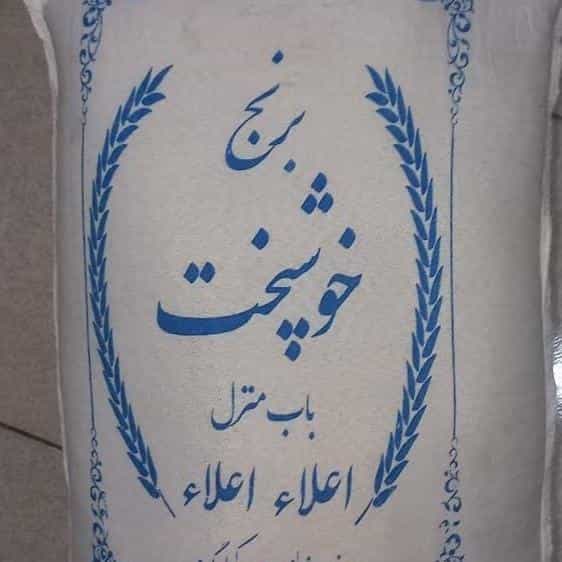 برنج
خوشپخت
باب منزل
اعلاء اعلاء